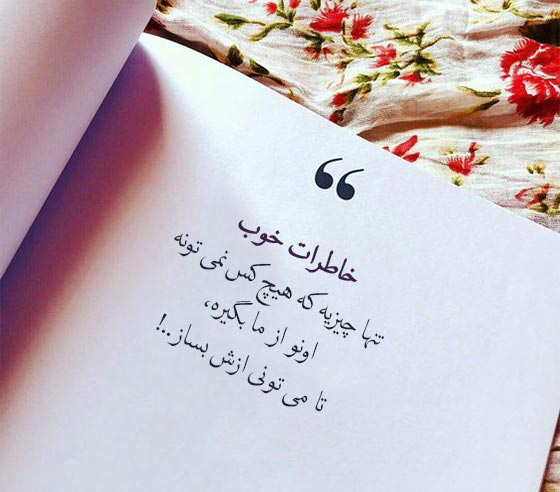 ❝
خاطرات خوب
تنها چیزیه که هیچ کس نمی تونه
اونو از ما بگیره،
تا می تونی ازش بساز..!